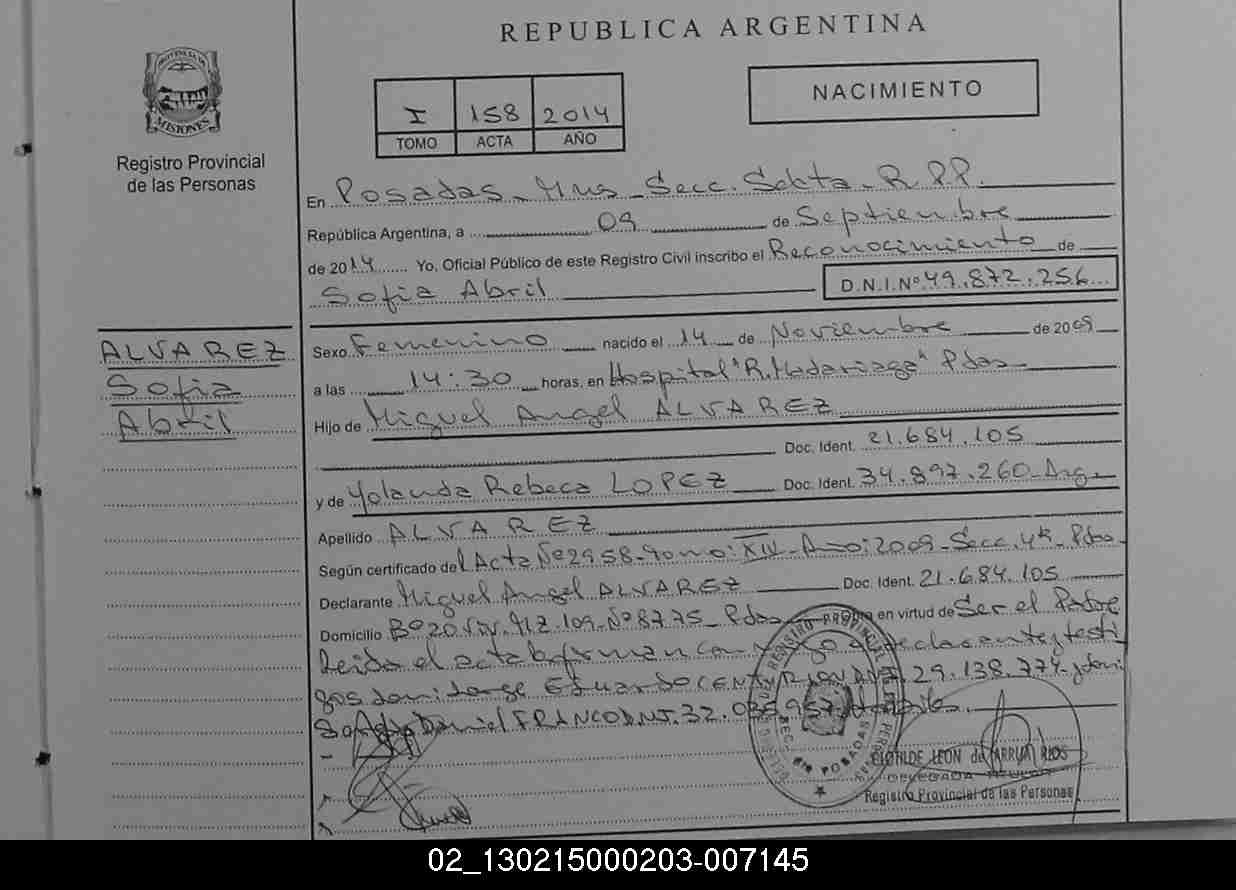 REPUBLICA ARGENTINA
PROVINCIA DE MISIONES
Registro Provincial
de las Personas
I 158 2014
TOMO ACTA AÑO
NACIMIENTO
En Posadas Mns Secc. Sexta R.P.P.
República Argentina, a 09 de Septiembre
de 2014 Yo. Oficial Público de este Registro Civil inscribo el Reconocimiento de
Sofia Abril D.N.I.Nº 49.872.256
ALVAREZ
Sofia
Abril
Sexo Femenino nacido el 14 de Noviembre de 2009
a las 14:30 horas, en Hospital "R. Madariaga" Pdas
Hijo de Miguel Angel ALVAREZ
Doc. Ident. 21.684.105
y de Yolanda Rebeca LOPEZ Doc. Ident. 34.897.260 Arg.
Apellido ALVAREZ
Según certificado del Acta Nº 2958 Tomo: XIV Año: 2009 Secc. 4ta Pdas
Declarante Miguel Angel ALVAREZ Doc. Ident. 21.684.105
Domicilio Bº 20 Viv. Mz. 109 Nº 8775 Pdas en virtud de Ser el Padre
Leida el acta la firman conmigo el declarante y testi
gos Jorge Eduardo 29.138.774 y
Daniel FRANCO DNI. 32.
CLOTILDE LEON de ARRUA RIOS
DELEGADA TITULAR
Registro Provincial de las Personas
REGISTRO PROVINCIAL DE LAS PERSONAS
POSADAS
02_130215000203-007145